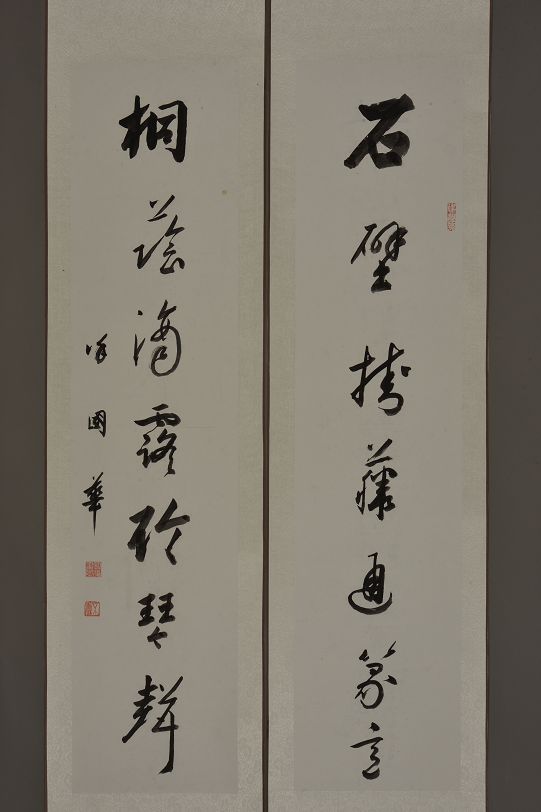 石壁掛藤通篆意
桐蔭滴露聆琴聲
國華